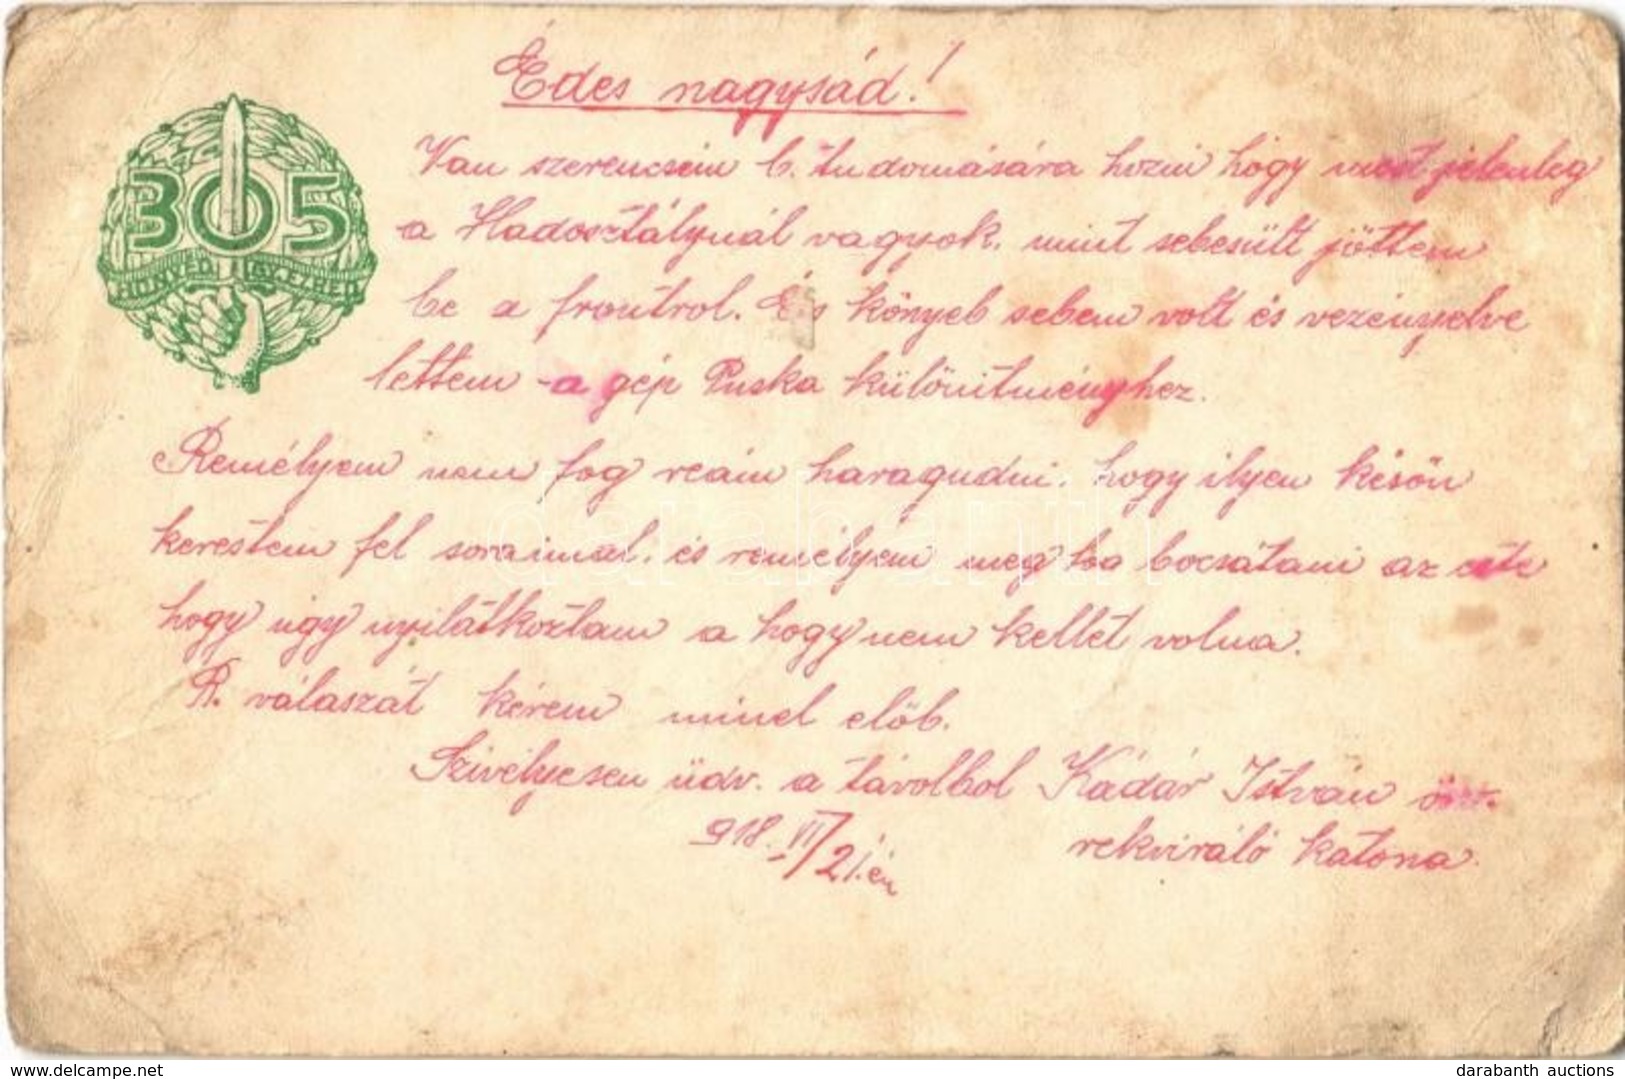 Édes nagysád!
305
HONVÉD GY. EZRED
Van szerencsém b. tudomására hozni hógy most jelenleg
a Hadosztálynál vagyok. mint sebesült jöttem
be a frontrol. És könyeb sebem volt és vezényelve
lettem a gép Puska különitményhez.
Remélyem nem fog reám haragudni. hogy ilyen késön
kerestem fel soraimal. és remélyem meg fog bocsátani az
hogy ugy nyilátkoztam a hogy nem kellet volna.
R. válaszát kérem minel elöb.
Szivélyesen üdv. a távolbol Kádár István
rekviráló katona.
918. VI/21.én
darabanth
delcampe.net
darabanth auctions